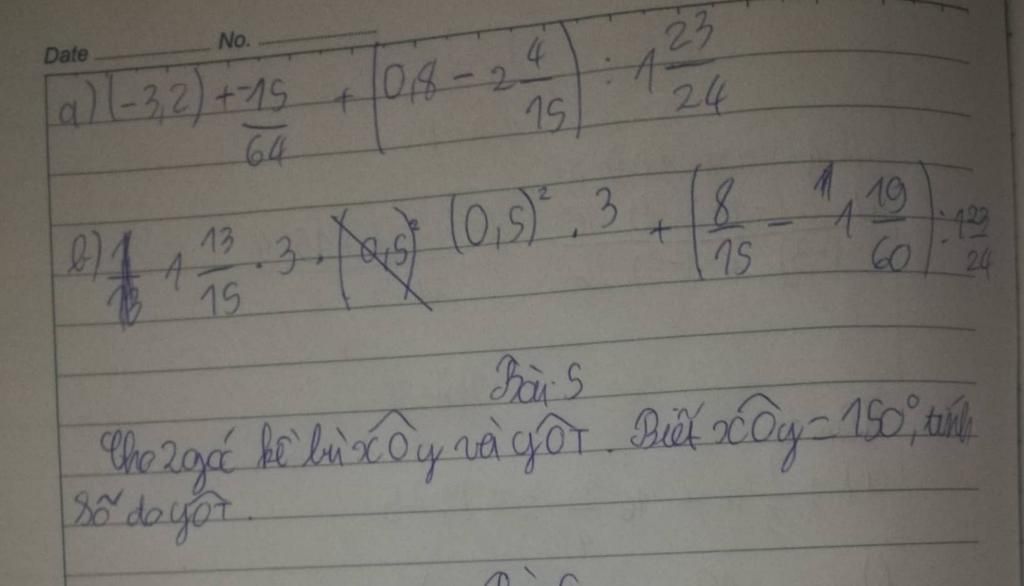 Date No.
a) (-3,2) + -15/64 + (0,8 - 2 4/15) : 1 23/24
b) 1 13/15 . 3 . (0,5)² (0,5)² . 3 + (8/15 - 1 19/60) : 1 23/24
Bài 5
Cho 2 góc kề bù xÔy và yÔT. Biết xÔy = 150°, tính
số đo yÔT.